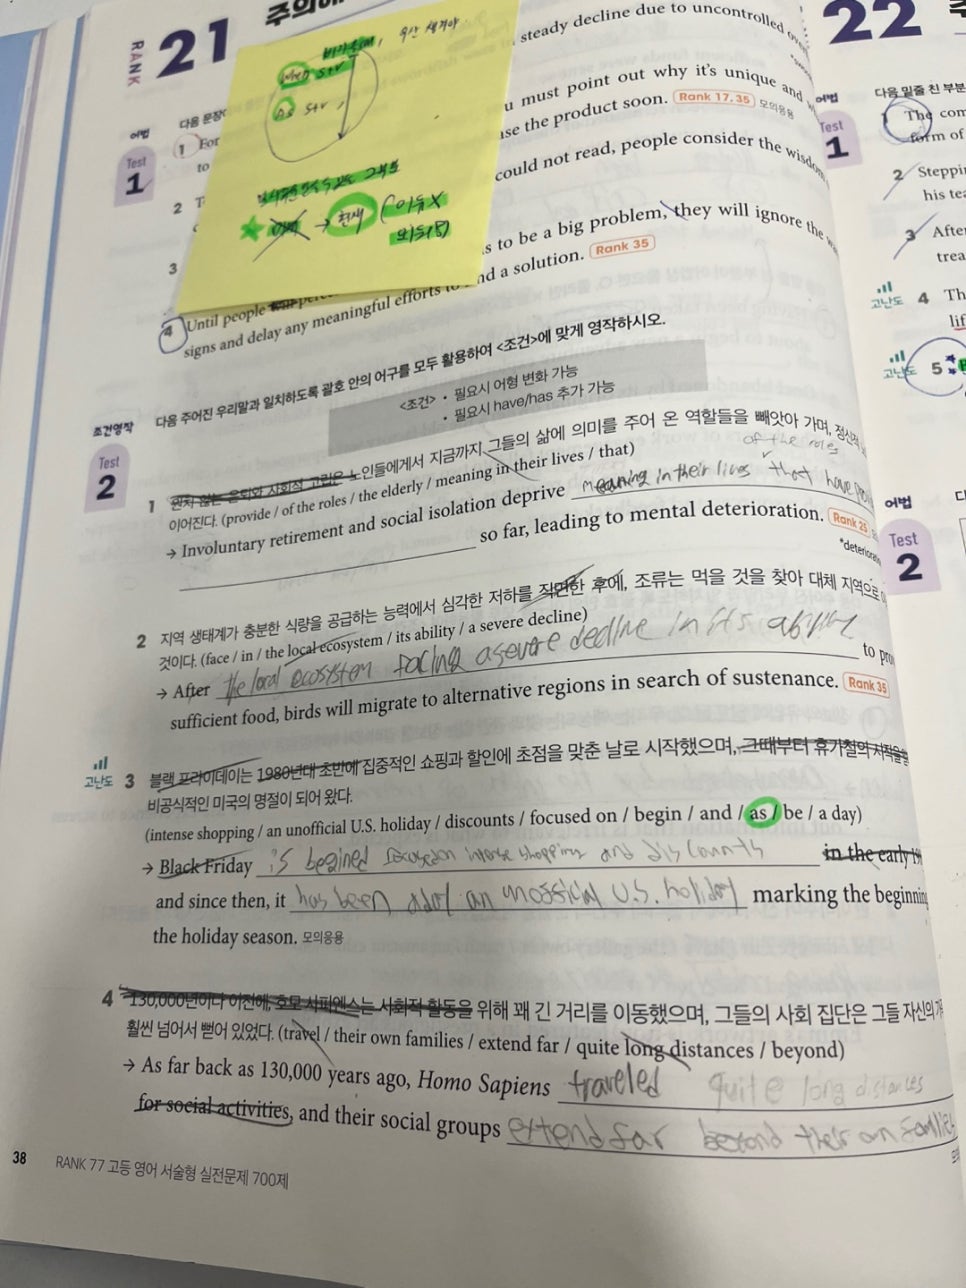 RANK 21 주의해
22
steady decline due to uncontrolled
u must point out why it's unique and
어법 다음 문장
Test 1
1 For
use the product soon. Rank 17, 35 모의응용
to
could not read, people consider the wisdom
2
3
s to be a big problem, they will ignore the
4 Until people
signs and delay any meaningful efforts to find a solution. Rank 35
when S+V
as S+V,
현재
조건영작
Test 2
다음 주어진 우리말과 일치하도록 괄호 안의 어구를 모두 활용하여 <조건>에 맞게 영작하시오.
<조건> • 필요시 어형 변화 가능
• 필요시 have/has 추가 가능
1 원치 않는 은퇴와 사회적 고립은 노인들에게서 지금까지 그들의 삶에 의미를 주어 온 역할들을 빼앗아 가며, 정신적
이어진다. (provide / of the roles / the elderly / meaning in their lives / that)
of the roles
→ Involuntary retirement and social isolation deprive meaning in their lives that have
so far, leading to mental deterioration. Rank 25
2 지역 생태계가 충분한 식량을 공급하는 능력에서 심각한 저하를 직면한 후에, 조류는 먹을 것을 찾아 대체 지역으로
것이다. (face / in / the local ecosystem / its ability / a severe decline)
→ After the local ecosystem facing a severe decline in its ability to
sufficient food, birds will migrate to alternative regions in search of sustenance. Rank 35
고난도 3 블랙 프라이데이는 1980년대 초반에 집중적인 쇼핑과 할인에 초점을 맞춘 날로 시작했으며, 그때부터 휴가철의 시작을
비공식적인 미국의 명절이 되어 왔다.
(intense shopping / an unofficial U.S. holiday / discounts / focused on / begin / and / as / be / a day)
→ Black Friday is begined focused on intense shopping and discounts in the early
and since then, it has been a day an unofficial U.S. holiday marking the beginning
the holiday season. 모의응용
4 130,000년이나 이전에, 호모 사피엔스는 사회적 활동을 위해 꽤 긴 거리를 이동했으며, 그들의 사회 집단은 그들 자신의
훨씬 넘어서 뻗어 있었다. (travel / their own families / extend far / quite long distances / beyond)
→ As far back as 130,000 years ago, Homo Sapiens traveled quite long distances
for social activities, and their social groups extend far beyond their own families
38 RANK 77 고등 영어 서술형 실전문제 700제
어법 다음 밑줄 친 부분
Test 1
1 The com
form of
2 Steppin
his tea
3 After
trea
고난도 4 Th
lif
고난도 5
어법
Test 2